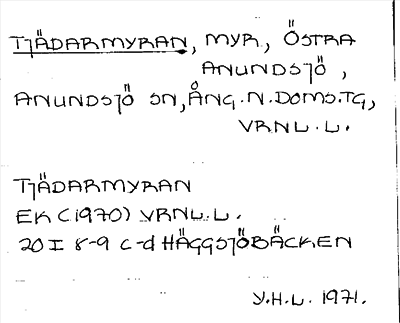 TJÄDARMYRAN, MYR, ÖSTRA
ANUNDSJÖ,
ANUNDSJÖ SN, ÅNG. N. DOMS.TG,
VRNL. L.
TJÄDARMYRAN
EK (1970) VRNL. L.
20 I 8-9 c-d HÄGGSJÖBÄCKEN
Y.H.L. 1971.